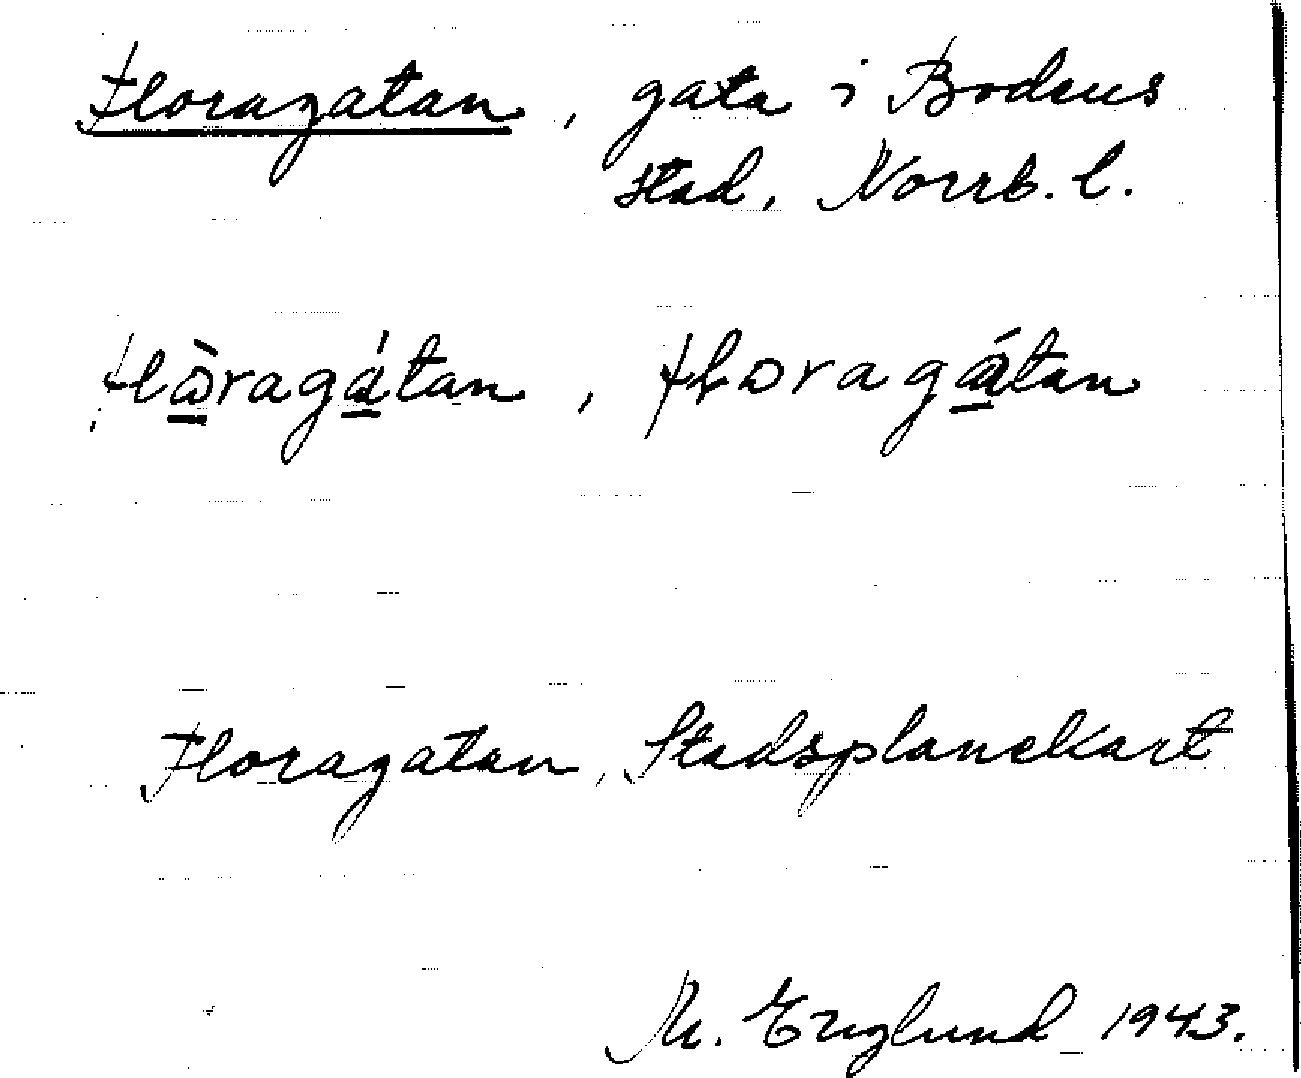 Floragatan, gata i Bodens
stad, Norrb. l.
flὼragátan, flωragátan
Floragatan, Stadsplanekart
M. Englund 1943.